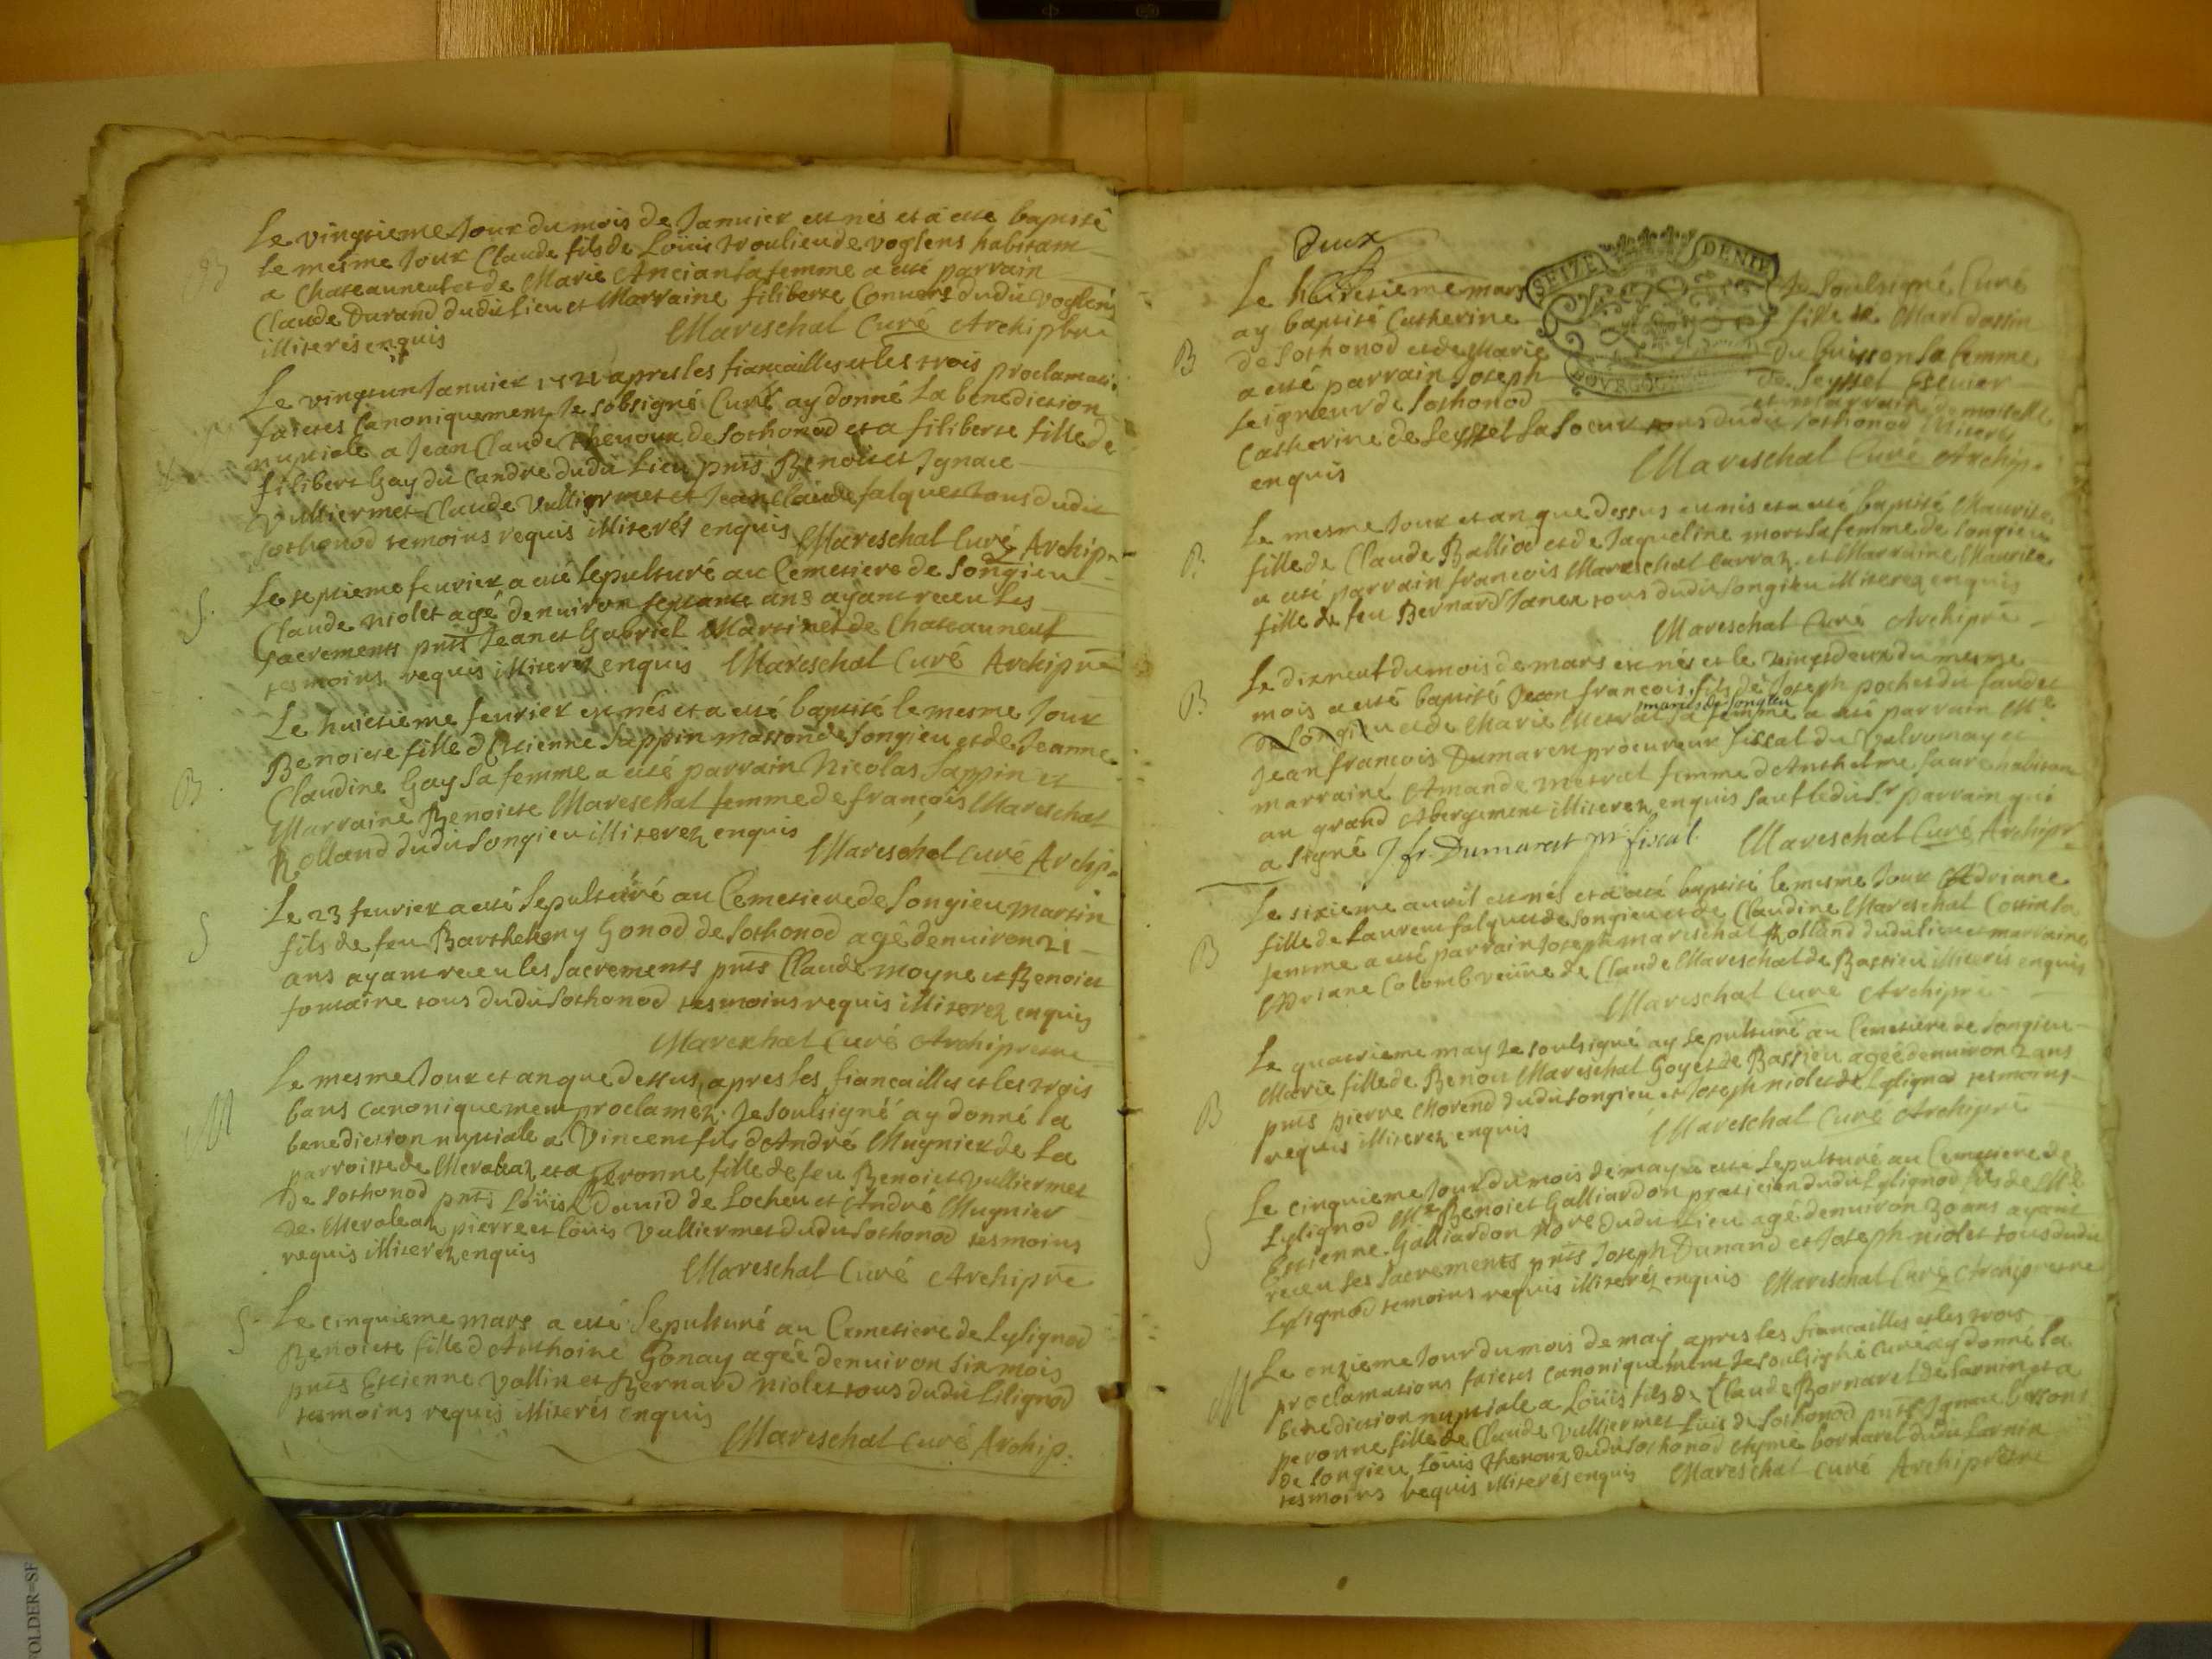 Le vingtieme Jour du mois de Januier est nés et a esté baptisé
le mesme Jour Claude fils de Loüis troulieu de voglens habitant
a Chateauneuf et de Marie Ancian sa femme a esté parrain
Claude Durand dudit Lieu et Marraine filiberte Convers dudit voglens
illiterés enquis Mareschal Curé Archipbre
Le vingt un Januier 1721 apres les fiançailles et les trois proclamati.
faictes Canoniquement Je sobsigné Curé ay donné La benediction
nuptiale a Jean Claude thenoux de Sothonod et a filiberte fille de
filibert Gay du Candre dudit Lieu pnts Benoit et Ignace
Vulliermet Claude Vulliermet et Jean Claude falquet tous dudit
Sothonod temoins requis illiterés enquis Mareschal Curé Archip.
S.
Le septieme feurier a esté Sepulturé au Cemetiere de Songieu
Claude niolet agé denuiron septante ans ayant receu les
sacrements pnts Jean et Gabriel Martinet de Chateauneuf
tesmoins requis illiterez enquis Mareschal Curé Archipre
B.
Le huictieme feurier est nés et a esté baptisé le mesme Jour
Benoite fille d Estienne Sappin masson de Songieu et de Jeanne
Claudine Gay sa femme a esté parrain Nicolas Sappin et
Marraine Benoiste Mareschal femme de françois Mareschal
Rolland dudit Songieu illiterez enquis
Mareschal Curé Archip.
S
Le 23 feurier a esté Sepulturé au Cemetiere de Songieu martin
fils de feu Barthelemy Gonod de Sothonod agé denuiron 21
ans ayant receu les Sacrements pnts Claude moyne et Benoict
fontaine tous dudit Sothonod tesmoins requis illiterez enquis
Mareschal Curé Archiprestre
M
Le mesme Jour et an que dessus, apres les fiancailles et les trois
bans canoniquement proclamez. Je soulsigné ay donné la
benediction nuptiale a Vincent fils d André Mugnier de La
parroisse de Meraleaz et a peronne fille de feu Benoict Vulliermet
de Sothonod pnts Loüis Dauid de Locheu et André Mugnier
de Meraleaz pierre et Loüis Vulliermet dudit Sothonod tesmoins
requis illiterez enquis
Mareschal Curé Archipre
S.
Le cinquieme mars a esté Sepulturé au Cemetiere de Lylignod
Benoicte fille d Anthoine Gonay agée denuiron six mois
pnts Estienne Vallin et Bernard niolet tous dudit Lilignod
tesmoins requis illiterés enquis
Mareschal Curé Archip.
Deux
SEIZE DENIE
Le huictieme mars Je Soulsigné Curé
ay baptisé Catherine fille de Marc dossin
B
de Sothonod et de Marie du buisson sa femme
a esté parrain Joseph de Seyssel Escuier
seigneur de Sothonod et marraine demoiselle
Catherine de Seyssel sa soeur tous dudit Sothonod illiterés
enquis Mareschal Curé Archip.
B.
Le mesme Jour et an que dessus est nés et a esté baptisé Maurise
fille de Claude Balliod et de Jaqueline mort sa femme de Songieu
a esté parrain francois Mareschal Carraz. et Marraine Maurise
fille de feu Bernard Janex tous dudit Songieu illiterez enquis
Mareschal Curé Archipre
B.
Le dixneuf du mois de mars est nés et le vingt deux du mesme
mois a esté baptisé Jean francois fils de Joseph pochet du faudet
de Songieu et de Marie Mestral sa femme a esté parrain Me
Jean francois Dumarest procureur fiscal du Valromay et
marraine Amande mestral femme d Anthelme faure habitant
au grand Abergement illiterez enquis sauf ledit Sr parrain qui
a signé J fr. Dumarest pr fiscal. Mareschal Curé Archipr.
B
Le sixieme auril est nés et a esté baptisé le mesme Jour Adriane
fille de Laurent falquet de Songieu et de Claudine Mareschal Cottin sa
femme a esté parrain Joseph mareschal Rolland dudit lieu et marraine
Adriane Colomb veüue de Claude Mareschal de Bassieu illiterés enquis
Mareschal Curé Archipre
B
Le quatrieme may Je soulsigné ay Sepulturé au Cemetiere de Songieu
Marie fille de Benoit Mareschal Goyet de Bassieu agée denuiron 2 ans
pnts pierre Morend dudit Songieu et Joseph niolet de Lylignod tesmoins
requis illiterez enquis Mareschal Curé Archipre
S
Le cinquieme Jour du mois de may a esté Sepulturé au Cemetiere de
Lylignod Me Benoict Galliardon praticien dudit Lylignod fils de Me
Estienne Galliardon Nore dudit Lieu agé denuiron 30 ans ayant
receu les Sacrements pnts Joseph Dunand et Joseph niolet tous dudit
Lylignod temoins requis illiterés enquis Mareschal Curé Archiprestre
M
Le onzieme Jour du mois de may apres les fiancailles et les trois
proclamations faictes canoniquement Je soulsigné curé ay donné la
benediction nuptiale a Loüis fils de Claude Bornarel de Larnin et a
peronne fille de Claude Vulliermet Luis de Sothonod pnts Ignace
de Songieu Loüis thenoux dudit Sothonod bornarel dudit Larnin
tesmoins requis illiterés enquis Mareschal Curé Archiprètre
OLDER=SF